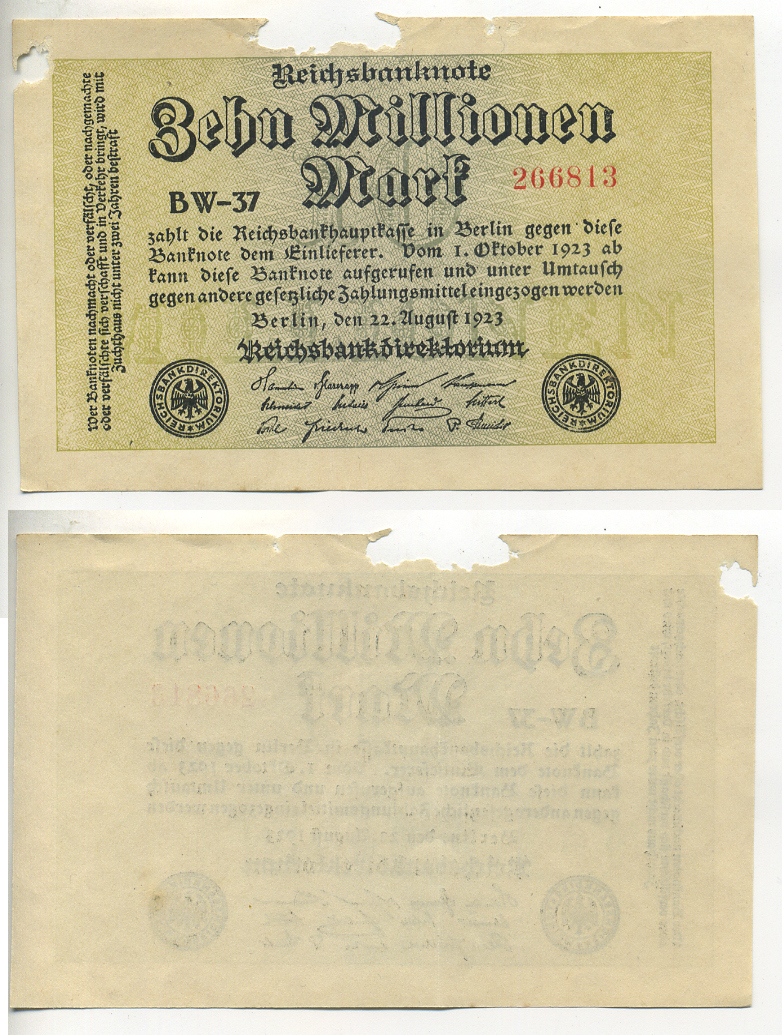 Reichsbanknote
Zehn Millionen
Mark
BW-37
266813
zahlt die Reichsbankhauptkasse in Berlin gegen diese
Banknote dem Einlieferer. Vom 1. Oktober 1923 ab
kann diese Banknote aufgerufen und unter Umtausch
gegen andere gesetzliche Zahlungsmittel eingezogen werden
Berlin, den 22. August 1923
Reichsbankdirektorium
REICHSBANKDIREKTORIUM
REICHSBANKDIREKTORIUM
Wer Banknoten nachmacht oder verfälscht, oder nachgemachte
oder verfälschte sich verschafft und in Verkehr bringt, wird mit
Zuchthaus nicht unter zwei Jahren bestraft